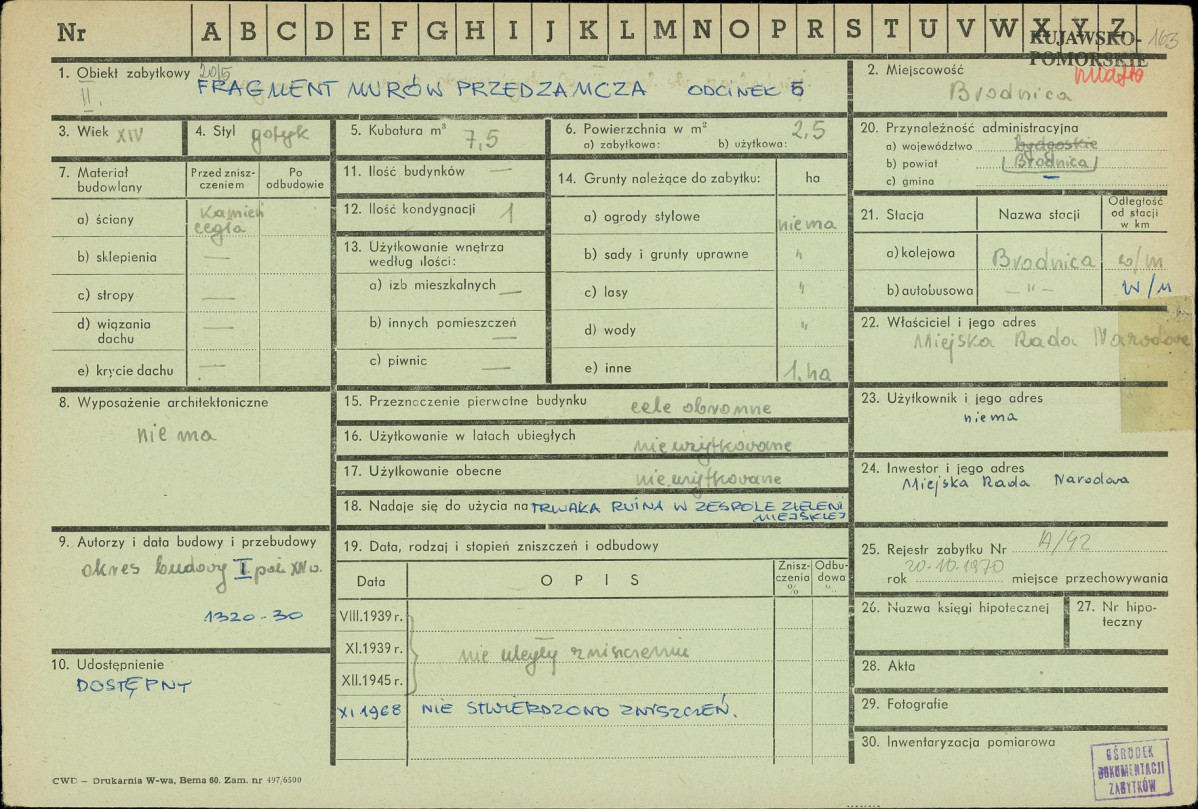 Nr A B C D E F G H I J K L M N O P R S T U V W X Y Z
KUJAWSKO-
POMORSKIE
163
miasto
1. Obiekt zabytkowy
II.
FRAGMENT MURÓW PRZEDZAMCZA ODCINEK 5
2. Miejscowość
Brodnica
3. Wiek XIV
4. Styl gotyk
5. Kubatura m³ 7,5
6. Powierzchnia w m² 2,5
a) zabytkowa: b) użytkowa:
20. Przynależność administracyjna
a) województwo bydgoskie
b) powiat (Brodnica)
c) gmina —
7. Materiał budowlany
Przed zniszczeniem
Po odbudowie
a) ściany Kamień
cegła
b) sklepienia —
c) stropy —
d) wiązania dachu —
e) krycie dachu —
11. Ilość budynków —
12. Ilość kondygnacji 1
13. Użytkowanie wnętrza
według ilości:
a) izb mieszkalnych —
b) innych pomieszczeń —
c) piwnic —
14. Grunty należące do zabytku: ha
a) ogrody stylowe niema
b) sady i grunty uprawne "
c) lasy "
d) wody "
e) inne 1. ha
21. Stacja Nazwa stacji Odległość od stacji w km
a) kolejowa Brodnica w/m
b) autobusowa — " — w/m
22. Właściciel i jego adres
Miejska Rada Narodowa
8. Wyposażenie architektoniczne
nie ma
15. Przeznaczenie pierwotne budynku cele obronne
16. Użytkowanie w latach ubiegłych nieużytkowane
17. Użytkowanie obecne nieużytkowane
18. Nadaje się do użycia na TRWAŁA RUINA W ZESPOLE ZIELENI
MIEJSKIEJ
23. Użytkownik i jego adres
niema
24. Inwestor i jego adres
Miejska Rada Narodowa
9. Autorzy i data budowy i przebudowy
okres budowy I poł. XIV w.
1320-30
10. Udostępnienie
DOSTĘPNY
19. Data, rodzaj i stopień zniszczeń i odbudowy
Data OPIS Zniszczenia % Odbudowa %
VIII.1939 r.
XI.1939 r. nie uległy zniszczeniu
XII.1945 r.
XI 1968 NIE STWIERDZONO ZNISZCZEŃ.
25. Rejestr zabytku Nr A/92
20.10.1970
rok miejsce przechowywania
26. Nazwa księgi hipotecznej
27. Nr hipoteczny
28. Akta
29. Fotografie
30. Inwentaryzacja pomiarowa
OŚRODEK
DOKUMENTACJI
ZABYTKÓW
CWD — Drukarnia W-wa, Bema 60. Zam. nr 497/6500